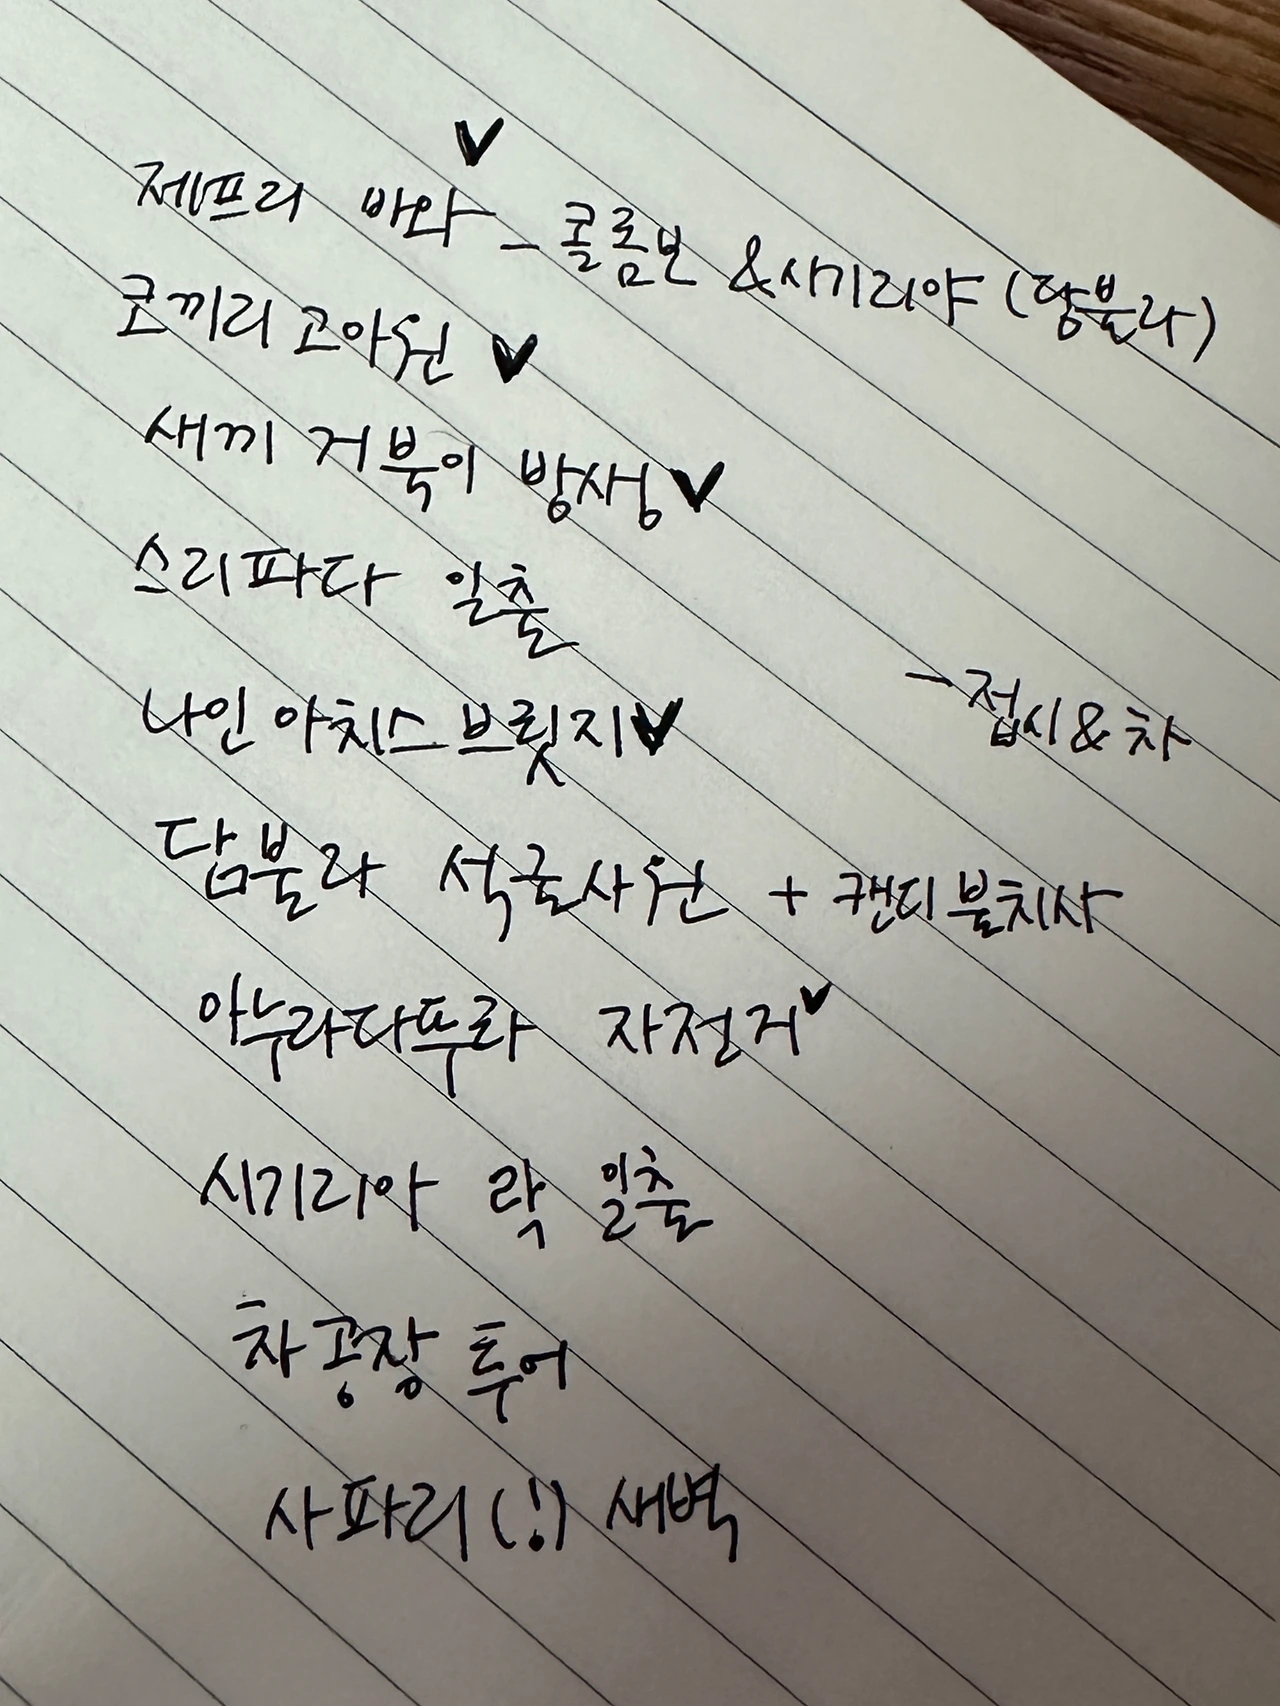 제프리 바와 ✓ - 콜롬보 & 시기리야 (담불라)
코끼리 고아원 ✓
새끼 거북이 방생 ✓
스리파다 일출
나인 아치스 브릿지 ✓
- 접시 & 차
담불라 석굴사원 + 캔디 불치사
아누라다뿌라 자전거 ✓
시기리아 락 일출
차 공장 투어
사파리 (!) 새벽